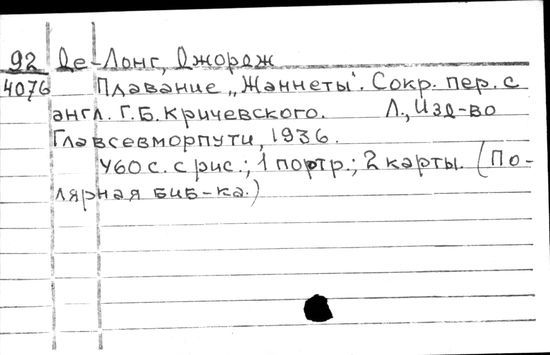 92 Де-Лонг, Джордж
4076 Плавание „Жаннеты". Сокр. пер. с
англ. Г.Б. Кричевского. Л., Изд-во
Главсевморпути, 1936.
460 с. с рис.; 1 портр.; 2 карты. (По-
лярная биб-ка.)